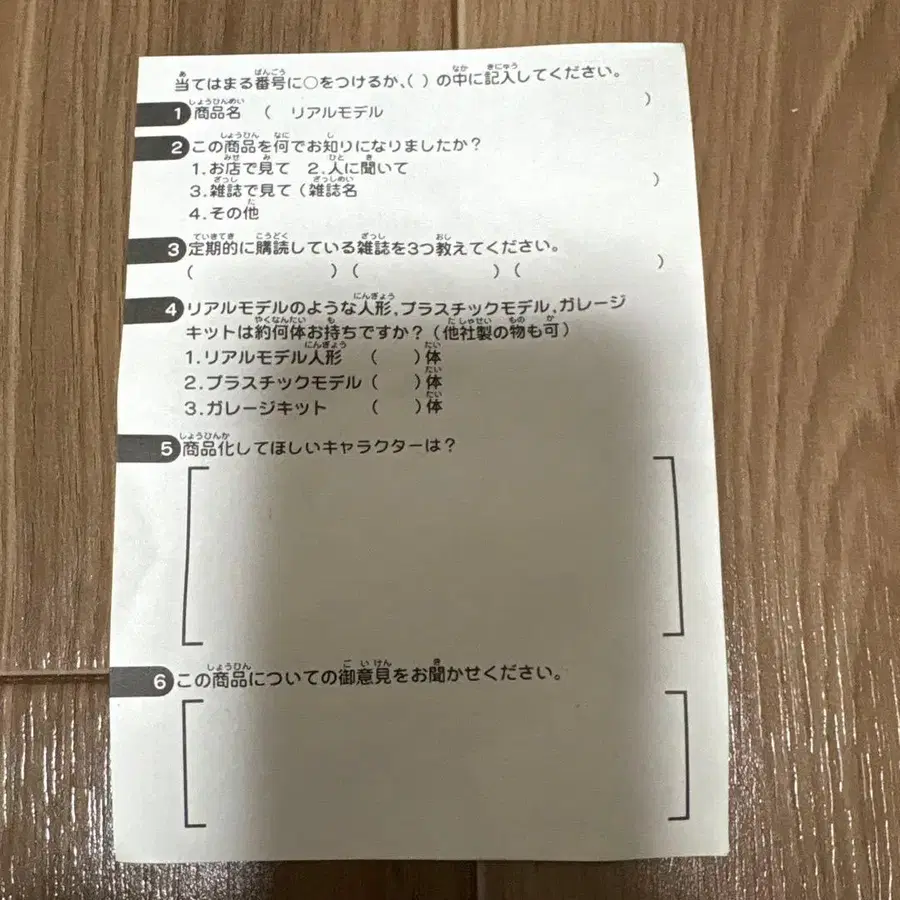 当てはまる番号に○をつけるか、( )の中に記入してください。
1 商品名 ( リアルモデル )
2 この商品を何でお知りになりましたか?
1.お店で見て 2.人に聞いて
3.雑誌で見て(雑誌名 )
4.その他
3 定期的に購読している雑誌を3つ教えてください。
( ) ( ) ( )
4 リアルモデルのような人形,プラスチックモデル,ガレージ
キットは約何体お持ちですか?(他社製の物も可)
1.リアルモデル人形 ( )体
2.プラスチックモデル ( )体
3.ガレージキット ( )体
5 商品化してほしいキャラクターは?
6 この商品についての御意見をお聞かせください。